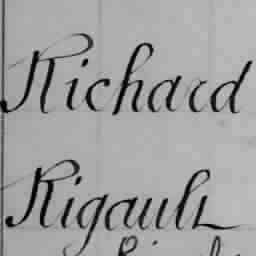 Richard
Rigault